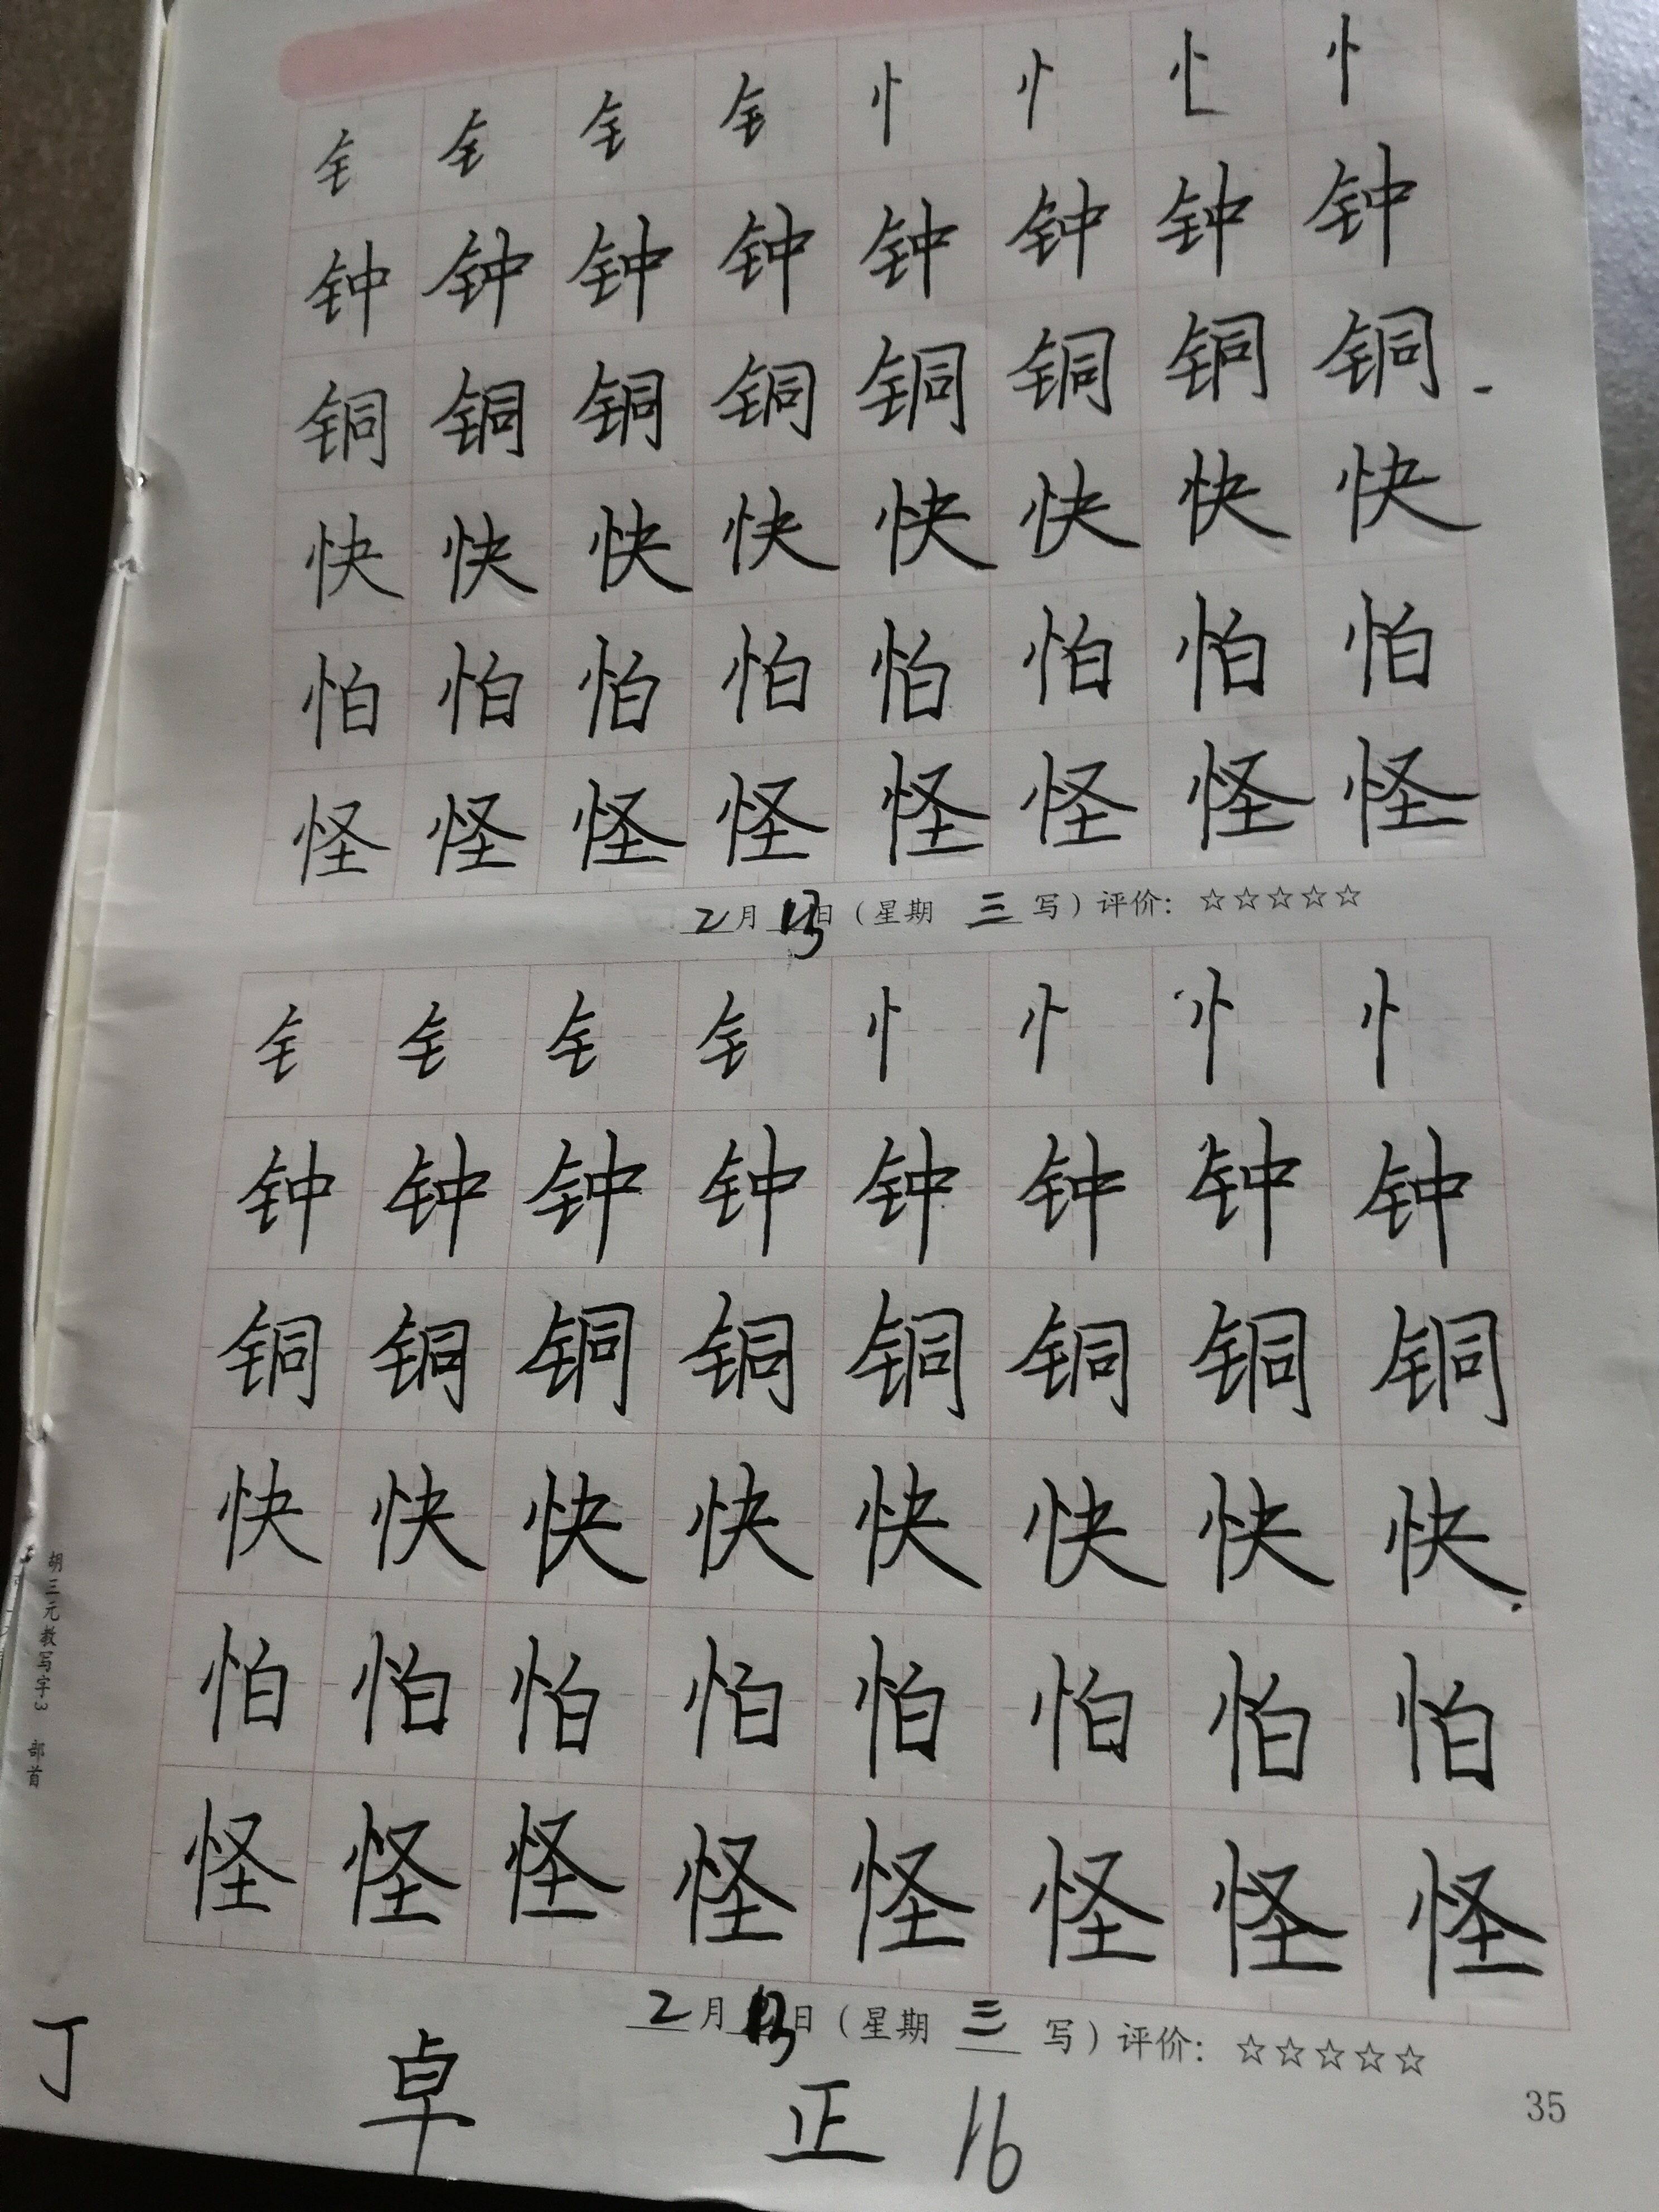 钅 钅 钅 钅 忄 忄 忄 忄
钟 钟 钟 钟 钟 钟 钟 钟
铜 铜 铜 铜 铜 铜 铜 铜
快 快 快 快 快 快 快 快
怕 怕 怕 怕 怕 怕 怕 怕
怪 怪 怪 怪 怪 怪 怪 怪
2月 日（星期 三 写）评价：☆☆☆☆☆
钅 钅 钅 钅 忄 忄 忄 忄
钟 钟 钟 钟 钟 钟 钟 钟
铜 铜 铜 铜 铜 铜 铜 铜
快 快 快 快 快 快 快 快
怕 怕 怕 怕 怕 怕 怕 怕
怪 怪 怪 怪 怪 怪 怪 怪
2月 日（星期 三 写）评价：☆☆☆☆☆
胡三元教写字3 部首
丁 卓 正 16
35